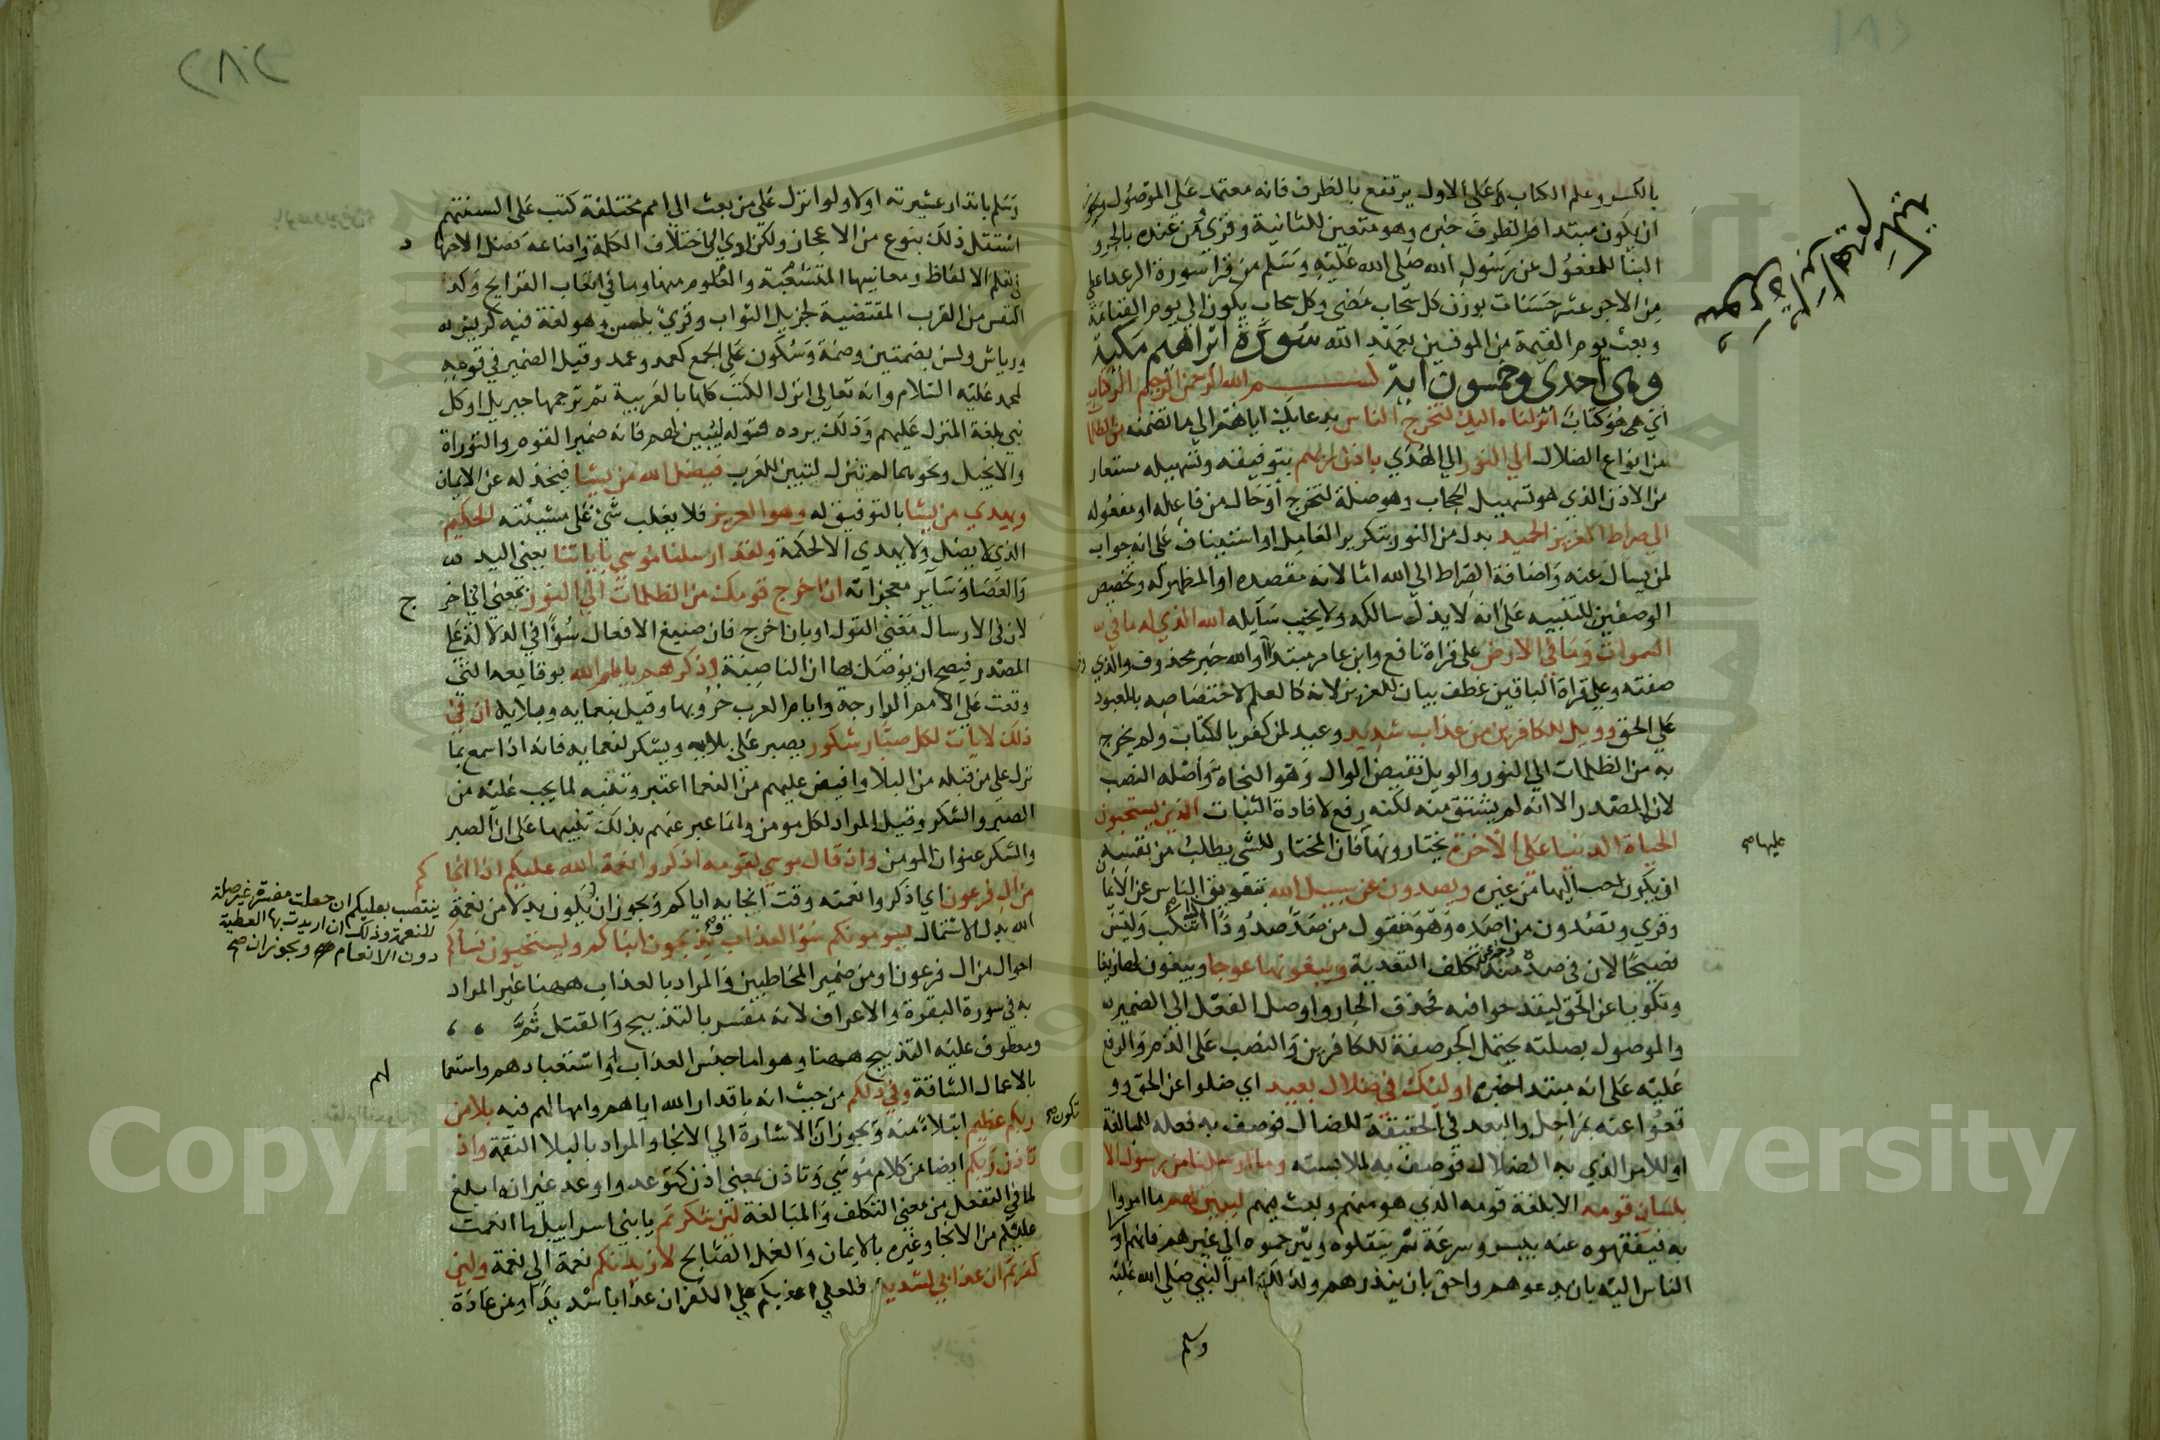 بالكسر وعلم الكتاب وعلى الاول يرتفع بالظرف فانه معتمد على الموصول ويجوز
ان يكون مبتدا والظرف خبره وهو متعين للثانية وقرئ من عنده بالحرف و
البنا للمفعول عن رسول الله صلى الله عليه وسلم من قرا سورة الرعد اعطي
من الاجر عشر حسنات بوزن كل سحاب مضى وكل سحاب يكون الى يوم القيامة
وبعث يوم القيمة من الموفين بعهد الله سورة ابراهيم مكية
وهي احدى وخمسون اية بسم الله الرحمن الرحيم الركتاب
اي هو كتاب انزلناه اليك لتخرج الناس بدعايك اياهم الى ما تضمنه من الظلمات
من انواع الضلال الى النور الى الهدي باذن ربهم بتوفيقه وتسهيله مستعار
من الاذن الذي هو تسهيل الحجاب وهو صلة لتخرج او حال من فاعله او مفعوله
الى صراط العزيز الحميد بدل من النور بتكرير العامل او استيناف على انه جواب
لمن يسال عنه واضافة الصراط الى الله اما لانه مقصده او المظهر له وتخصيص
الوصفين للتنبيه على انه لا يذل سالكه ولا يخيب سايله الله الذي له ما في
السموات وما في الارض على قراة نافع وابن عامر مبتدا والله خبر محذوف والذي
صفته وعلى قراة الباقين عطف بيان للعزيز لانه كالعلم لاختصاصه بالمعبود
على الحق وويل للكافرين من عذاب شديد وعيد لمن كفر بالكتاب ولم يخرج
به من الظلمات الى النور والويل نقيض الوال وهو النجاة واصله النصب
لانه مصدر الا انه لم يشتق منه لكنه رفع لافادة الثبات الذين يستحبون
الحياة الدنيا على الاخرة يختارونها فان المختار للشي يطلب من نفسه
ان يكون احب اليها من غيره ويصدون عن سبيل الله بتعويق الناس عن الايمان
وقري ويصدون من اصده وهو منقول من صد صدودا اذا تنكب وليس
فصيحا لان في صده مندوحة عن تكلف التعدية ويبغونها عوجا ويبغون لها زيغا
ونكوبا عن الحق ليقدحوا فيه فحذف الجار واوصل الفعل الى الضمير
والموصول بصلته يحتمل الجر صفة للكافرين والنصب على الذم والرفع
عليه على انه مبتدا خبره اوليك في ضلال بعيد اي ضلوا عن الحق وو
قعوا عنه بمراحل والبعد في الحقيقة للضال فوصف به فعله للمبالغة
او للامر الذي به الضلال فوصف به لملابسته وما ارسلنا من رسول الا
بلسان قومه الا بلغة قومه الذي هو منهم وبعث فيهم ليبين لهم ما امروا
به فيفقهوه عنه بيسر وسرعة ثم ينقلوه ويترجموه الى غيرهم فانهم اولى
الناس اليه بان يدعوهم واحق بان ينذرهم ولذلك امر النبي صلى الله عليه
وسلم
عليها صح
وسلم بانذار عشيرته اولا ولو انزل على من بعث الى امم مختلفة كتب على السنتهم
استقل ذلك بنوع من الاعجاز ولكن ادي الى اختلاف الكلمة واضاعة فضل الاجتهاد
في تعلم الالفاظ ومعانيها المتشعبة والعلوم منها وما في اتعاب القرايح وكد
النفس من القرب المقتضية لجزيل الثواب وقري بلسن وهو لغة فيه كريش
ورياش ولسن بضمتين وضمة وسكون على الجمع كعمد وعمد وقيل الضمير في قومه
لمحمد عليه السلام وانه تعالى انزل الكتب كلها بالعربية ثم ترجمها جبريل او كل
نبي بلغة المنزل عليهم وذلك يرده قوله ليبين لهم فانه ضمير القوم والتوراة
والانجيل ونحوهما لم تنزل لتبين للعرب فيضل الله من يشا فيخذله عن الايمان
ويهدي من يشا بالتوفيق له وهو العزيز فلا يغلب شي على مشيئته الحكيم
الذي لا يضل ولا يهدي الا لحكمة ولقد ارسلنا موسي باياتنا يعني اليد
والعصا وساير معجزاته ان اخرج قومك من الظلمات الى النور بمعنى اي اخر
ج
لان في الارسال معني القول او بان اخرج فان صيغ الافعال سوا في الدلالة على
المصدر فيصح ان يوصل بها ان الناصبة وذكرهم بايام الله بوقايعه التي
وقعت على الامم الدارجة وايام العرب حروبها وقيل بنعمايه وبلايه ان في
ذلك لايات لكل صبار شكور يصبر على بلايه ويشكر لنعمايه فانه اذا سمع بما
نزل علي من قبله من البلا وافيض عليهم من النعما اعتبر وتنبه لما يجب عليه من
الصبر والشكر وقيل المراد لكل مومن وانما عبر عنهم بذلك تنبيها على ان الصبر
والشكر عنوان المومن واذ قال موسي لقومه اذكروا نعمة الله عليكم اذ انجا
كم
من ال فرعون اي اذكروا نعمته وقت انجايه اياكم ويجوز ان يكون بدلا من نعمة
الله بدل الاشتمال يسومونكم سوء العذاب ويذبحون ابناكم ويستحيون نساكم
احوال من ال فرعون او من ضمير المخاطبين والمراد بالعذاب ههنا غير المراد
به في سورة البقرة والاعراف لانه مفسر بالتذبيح والقتل ثم
ومعطوف عليه التذبيح ههنا وهو اما جنس العذاب او استعبادهم واستعما
لهم
بالاعمال الشاقة وفي ذلكم من حيث انه باقدار الله اياهم وامهالهم فيه بلا من
ربكم عظيم ابتلاء منه ويجوز ان الاشارة الى الانجا والمراد بالبلا النعمة واذ
تاذن ربكم ايضا من كلام موسي وتاذن بمعني اذن كتوعد واوعد غير انه ابلغ
لما في التفعل من معني التكلف والمبالغة لئن شكرتم يا بني اسراييل ما انعمت
عليكم من الانجا وغيره بالايمان والعمل الصالح لازيدنكم نعمة الى نعمة ولين
كفرتم ان عذابي لشديد فلعلي اعذبكم على الكفران عذابا شديدا ومن عادة
ينتصب بعليكم ان جعلت مفسرة غير صلة
للنعمة وذلك ان اريدت بها العطية
دون الانعام ويجوز ان صح
تكون صح
Copyright © King Saud University